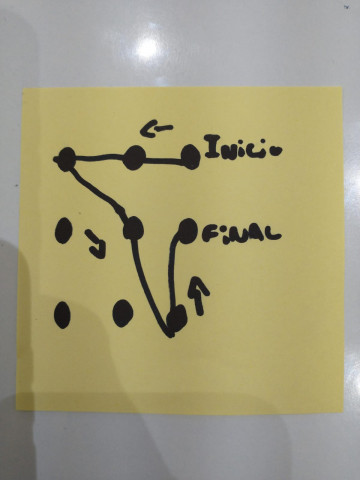 Inicio
FiNAL